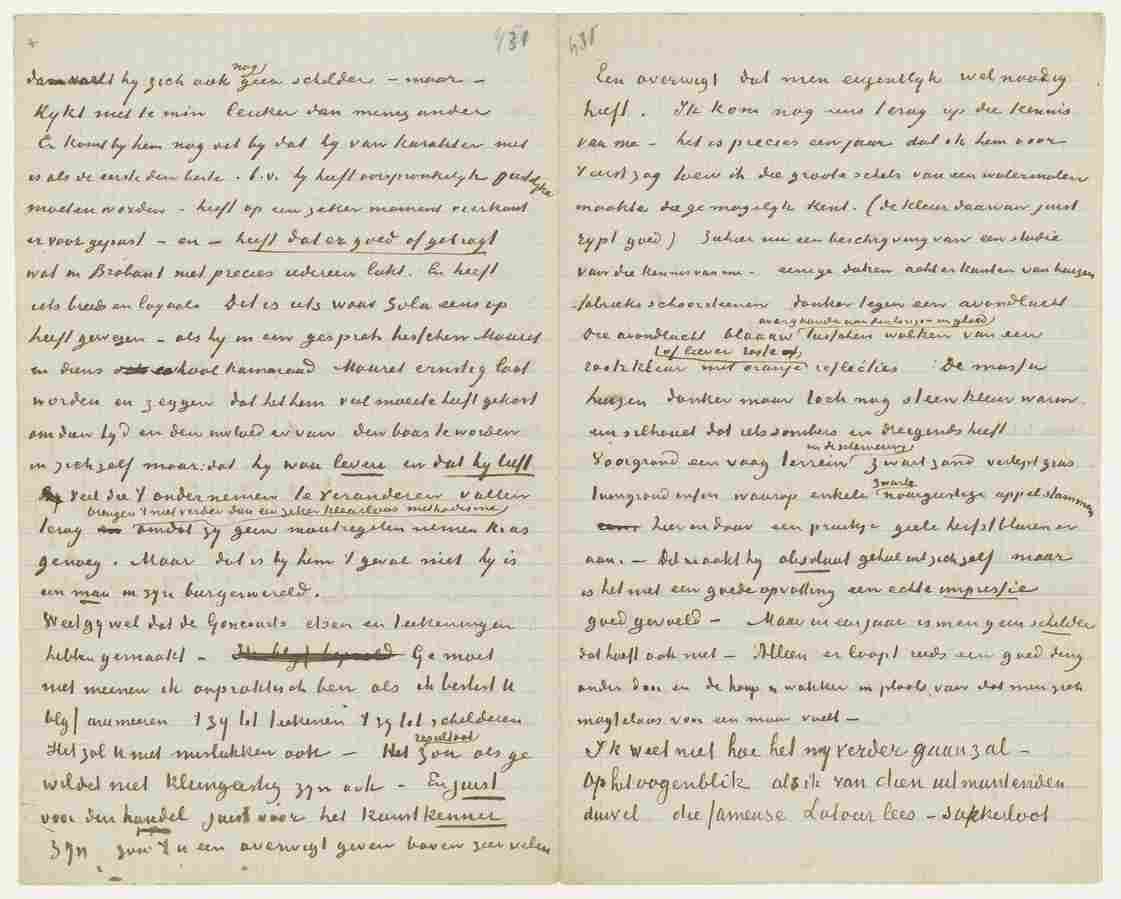 431
431
voelt hy zich ook nog geen schilder – maar –
Kykt niet te min leuker dan menig ander
Er komt by hem nog dit by dat hy van karakter niet
is als de eerste den beste. b.v. hy heeft oorspronkelyk
moeten worden – heeft op een zeker moment vierkant
er voor gepast – en – heeft dat er goed af gebragt
wat in Brabant niet precies iedereen lukt. En heeft
iets breeds en loyaals Dit is iets waar Zola eens op
heeft gewezen – als hy in een gesprek tusschen Mouret
en diens school kameraad Mouret ernstig laat
worden en zeggen dat het hem veel moeite heeft gekost
om dien tyd en den invloed ervan den baas te worden
in zich zelf maar: dat hy wou leven en dat hy leeft
Veel die 't ondernemen te veranderen vallen
brengen 't niet verder dan een zeker kleurloos methodisme
terug omdat zy geen maatregelen nemen kras
genoeg. Maar dat is by hem 't geval niet hy is
een man in zyn burgerwereld.
Weet gy wel dat de Goncourts etsen en teekeningen
hebben gemaakt – Ge moet
niet meenen ik onpraktisch ben als ik beslist U
blyf animeeren 't zy tot teekenen 't zy tot schilderen
Het zal U niet mislukken ook – Het resultaat zou als ge
wildet niet kleingeestig zyn ook – En juist
voor den handel juist voor het kunstkenner
zyn zou 't U een overwigt geven boven zeer velen
Een overwigt dat men eigentlyk wel noodig
heeft. Ik kom nog eens terug op die kennis
van me – het is precies een jaar dat ik hem voor
't eerst zag toen ik die groote schets van een watermolen
maakte die ge mogelyk kent. (de kleur daarvan juist
rypt goed) Ziehier nu een beschryving van een studie
van die kennis van me – eenige daken achterkanten van huizen
fabrieks schoorsteenen donker tegen een avondlucht
over g
Die avondlucht blaauw tusschen wolken van een
of liever roste
rookkleur met oranje reflecties De massa
huizen donker maar toch nog steenkleur warm.
een silhouet dat iets sombers en dreigends heeft
in de schemering
Voorgrond een vaag terrein zwart zand verlept gras
tuingrond enfin waarop enkele zwarte noueguetige appelstammen
hier en daar een praatje geele herfstblaren er
aan. – Dit maakt hy absoluut geheel uit zich zelf maar
is het met een goede opvatting een echte impressie
goed gevoeld – Maar in een jaar is men geen schilder
dat hoeft ook niet – Alleen er loopt reeds een goed ding
onder door en de hoop is wakker in plaats van dat men zich
magteloos voor een muur voelt –
Ik weet niet hoe het my verder gaan zal –
Op het oogenblik als ik van dien uitmuntenden
duivel die fameuse Latour lees – sakkerloot